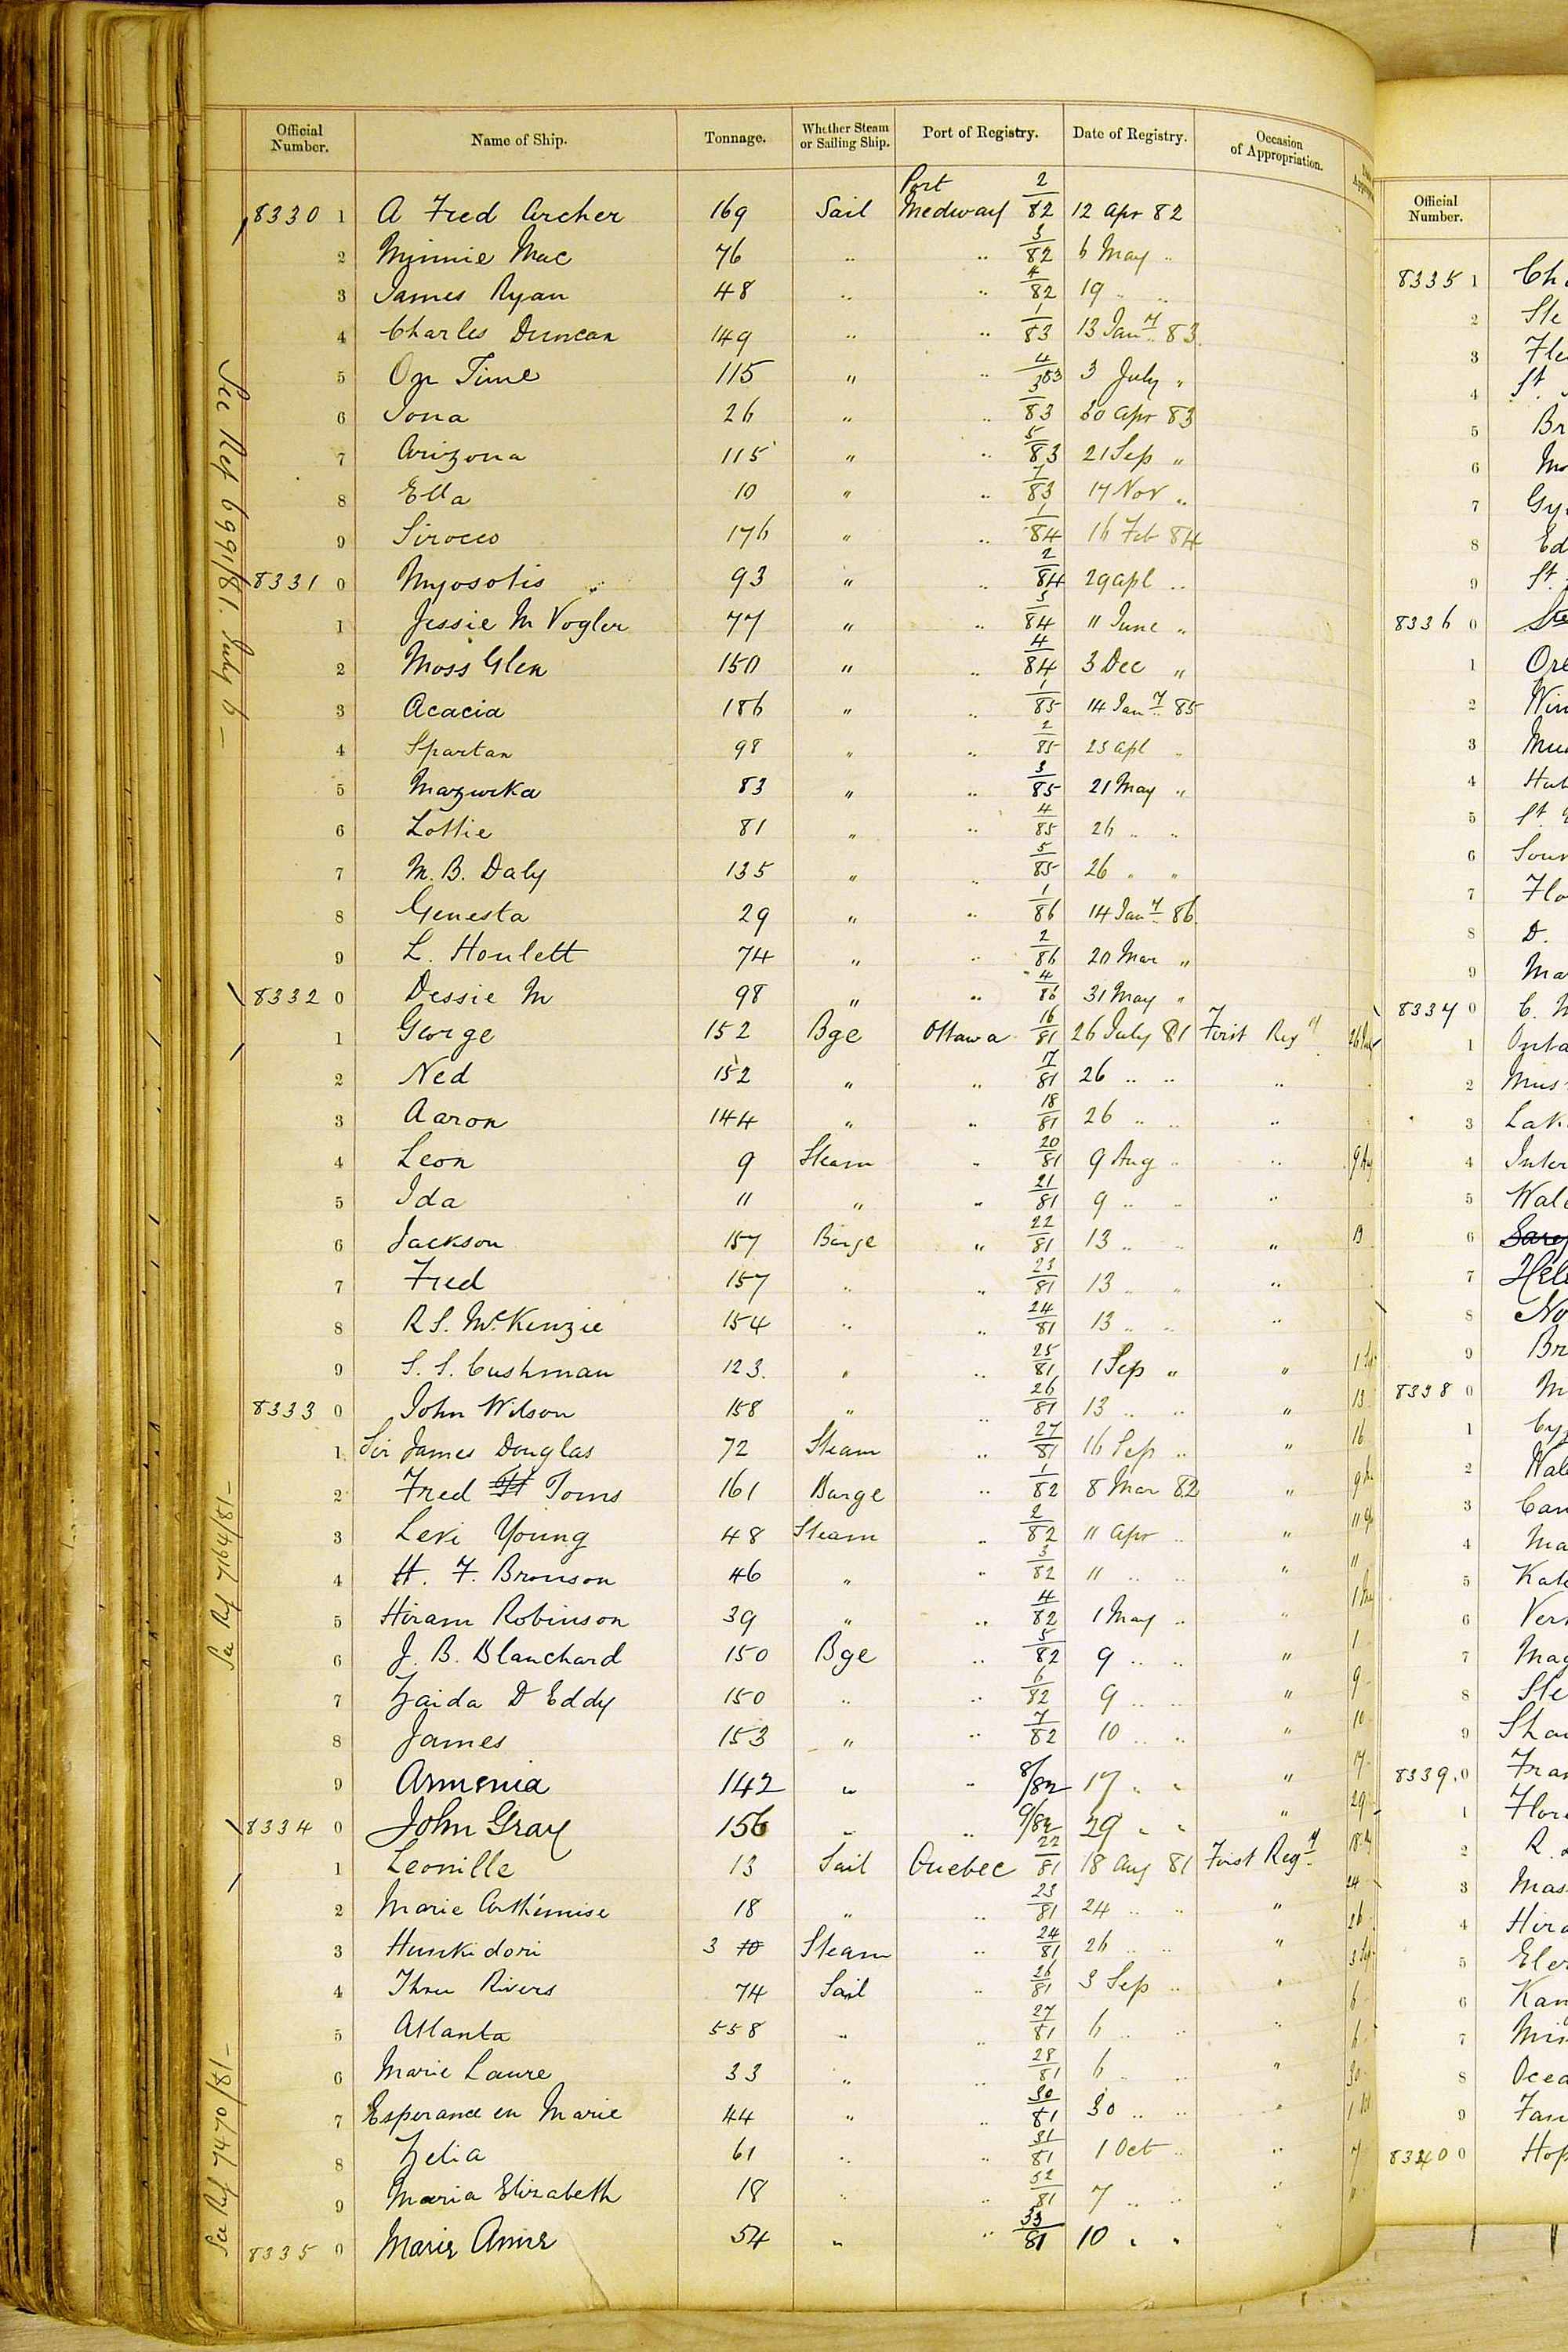 Official Number. Name of Ship. Tonnage. Whether Steam or Sailing Ship. Port of Registry. Date of Registry. Occasion of Appropriation.
8330 1 A Fred Archer 169 Sail Port Medway 2/82 12 Apr 82
2 Minnie Mac 76 " " 3/82 6 May "
3 James Ryan 48 " " 4/82 19 " "
4 Charles Duncan 149 " " 1/83 13 Jany 83
5 On Time 115 " " 4/83 3 July "
6 Iona 26 " " 3/83 30 Apr 83
7 Arizona 115 " " 5/83 21 Sep "
8 Ella 10 " " 7/83 17 Nov "
9 Sirocco 176 " " 1/84 16 Feb 84
8331 0 Myosotis 93 " " 2/84 29 Apl "
1 Jessie M Vogler 77 " " 3/84 11 June "
2 Moss Glen 150 " " 4/84 3 Dec "
3 Acacia 186 " " 1/85 14 Jany 85
4 Spartan 98 " " 2/85 25 Apl "
5 Mazurka 83 " " 3/85 21 May "
6 Lottie 81 " " 4/85 26 " "
7 M. B. Daly 135 " " 5/85 26 " "
8 Genesta 29 " " 1/86 14 Jany 86
9 L. Houlett 74 " " 2/86 20 Mar "
8332 0 Dessie M 98 " " 4/86 31 May "
1 George 152 Bge Ottawa 16/81 26 July 81 First Regy
2 Ned 152 " " 17/81 26 " " "
3 Aaron 144 " " 18/81 26 " " "
4 Leon 9 Steam " 20/81 9 Aug " "
5 Ida 11 " " 21/81 9 " " "
6 Jackson 157 Barge " 22/81 13 " " " 13
7 Fred 157 " " 23/81 13 " " "
8 R S. McKenzie 154 " " 24/81 13 " " "
9 S. S. Cushman 123 " " 25/81 1 Sep " "
8333 0 John Wilson 158 " " 26/81 13 " " " 13
1 Sir James Douglas 72 Steam " 27/81 16 Sep " " 16
2 Fred Toms 161 Barge " 1/82 8 Mar 82 "
3 Levi Young 48 Steam " 2/82 11 Apr " "
4 H. F. Bronson 46 " " 3/82 11 " " " 11
5 Hiram Robinson 39 " " 4/82 1 May " "
6 J. B. Blanchard 150 Bge " 5/82 9 " " "
7 Zaida D Eddy 150 " " 6/82 9 " " " 9
8 James 153 " " 7/82 10 " " " 10
9 Armenia 142 " " 8/82 17 " " " 17
8334 0 John Gray 156 " " 9/82 29 " " " 29
1 Leonille 13 Sail Quebec 22/81 18 Aug 81 First Regy
2 Marie Arthémise 18 " " 23/81 24 " " " 24
3 Hunkidori 3 10 Steam " 24/81 26 " " " 26
4 Three Rivers 74 Sail " 26/81 3 Sep " " 3 Sep
5 Atlanta 558 " " 27/81 6 " " " 6
6 Marie Laure 33 " " 28/81 6 " " " 6
7 Esperance en Marie 44 " " 30/81 30 " " " 30
8 Zelia 61 " " 31/81 1 Oct " "
9 Maria Elizabeth 18 " " 32/81 7 " " " 7
8335 0 Marie Anne 54 " " 33/81 10 " "
See Ref 6991/81. July 6
See Ref 7164/81
See Ref 7470/81
Official Number.
8335 1
2 Ste
3
4 St.
5 Br
6
7
8 Ed
9 St.
8336 0
1
2
3
4
5 St.
6
7
8 D.
9 Ma
8337 0
1
2
3
4
5
6
7
8 No
9 Br
8338 0
1
2
3
4
5
6
7
8
9
8339 0
1
2 R.
3
4
5
6
7
8
9
8340 0